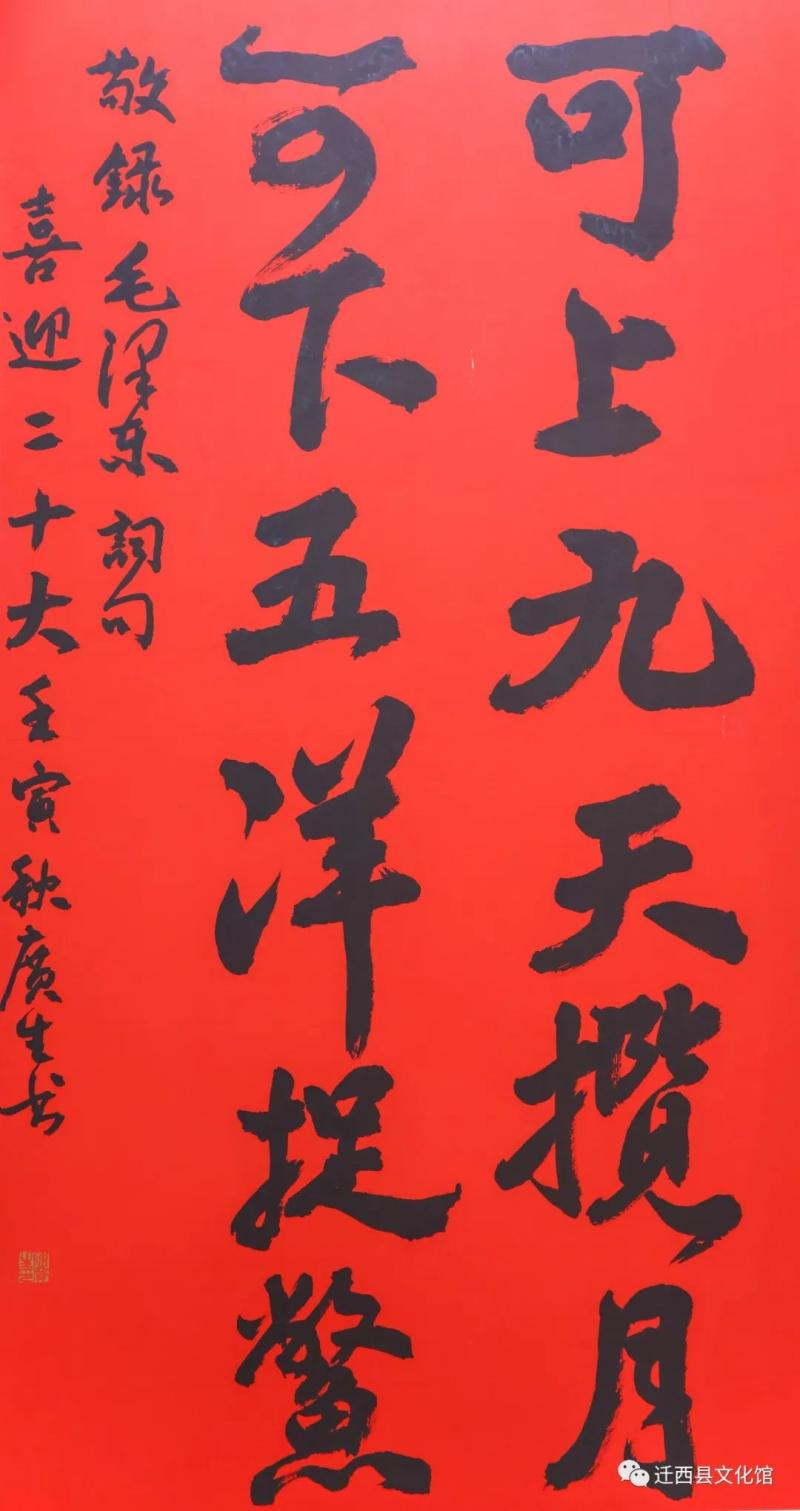 可上九天揽月
可下五洋捉鳖
敬録毛泽东詞句
喜迎二十大壬寅秋廣生书
迁西县文化馆